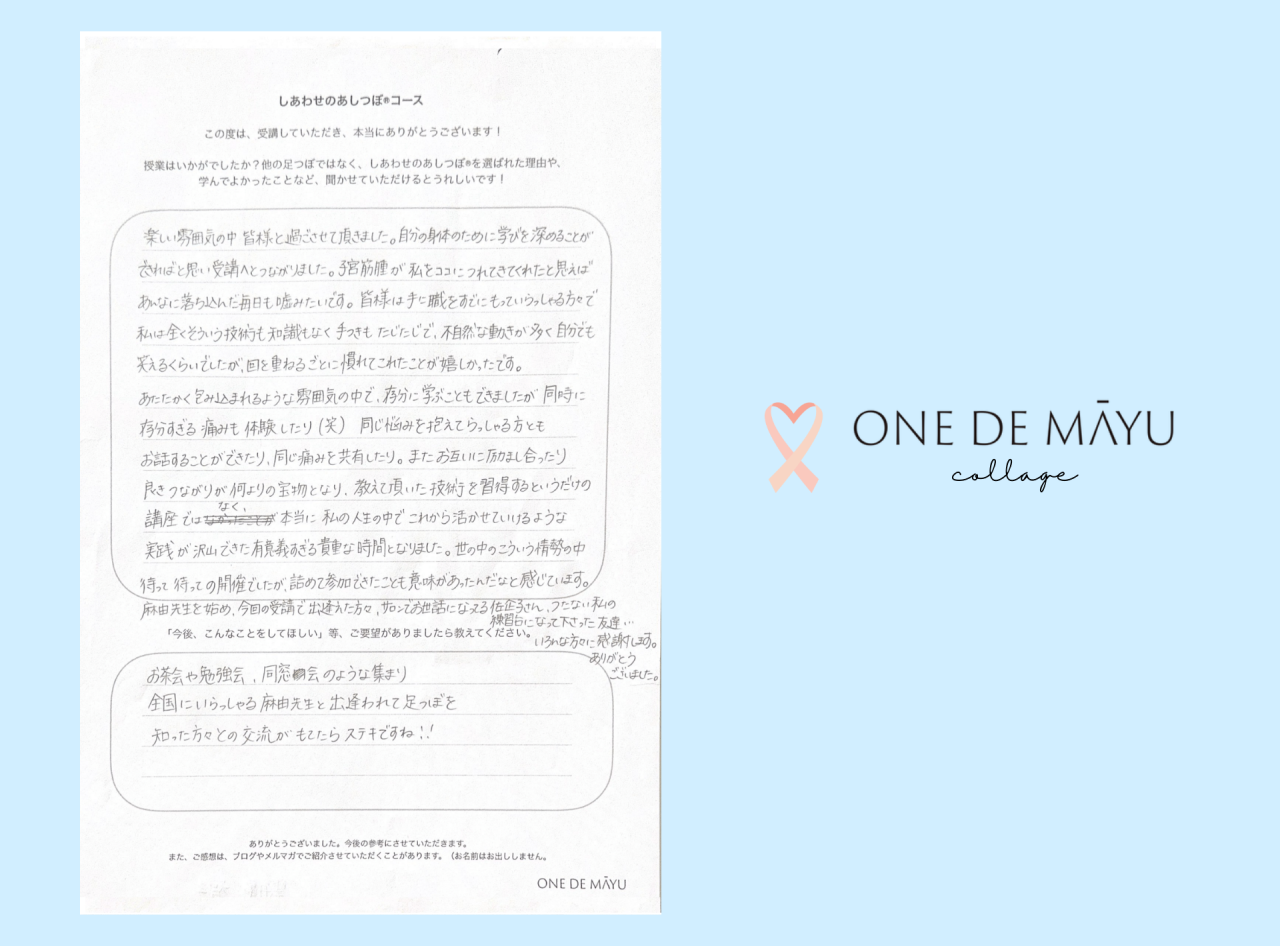 しあわせのあしつぼ®コース
この度は、受講していただき、本当にありがとうございます！
授業はいかがでしたか？他の足つぼではなく、しあわせのあしつぼ®を選ばれた理由や、
学んでよかったことなど、聞かせていただけるとうれしいです！
楽しい雰囲気の中 皆様と過ごさせて頂きました。自分の身体のために学びを深めることが
できればと思い受講へとつながりました。子宮筋腫が私をココにつれてきてくれたと思えば
あんなに落ち込んだ毎日も嘘みたいです。皆様は手に職をすでにもっていらっしゃる方々で
私は全くそういう技術も知識もなく手つきもたじたじで、不自然な動きが多く自分でも
笑えるくらいでしたが、回を重ねるごとに慣れてこれたことが嬉しかったです。
あたたかく包み込まれるような雰囲気の中で、存分に学ぶこともできましたが同時に
存分すぎる痛みも体験したり（笑）同じ悩みを抱えてらっしゃる方とも
お話することができたり、同じ痛みを共有したり。またお互いに励まし合ったり
良きつながりが何よりの宝物となり、教えて頂いた技術を習得するというだけの
講座ではなく、本当に私の人生の中でこれから活かせていけるような
実践が沢山できた有意義すぎる貴重な時間となりました。世の中のこういう情勢の中
待って待っての開催でしたが、詰めて参加できたことも意味があったんだなと感じています。
麻由先生を始め、今回の受講で出逢えた方々、サロンでお世話になってる佐企子さん、つたない私の
練習台になって下さった友達…
いろんな方々に感謝します。
ありがとう
ございました。
「今後、こんなことをしてほしい」等、ご要望がありましたら教えてください。
お茶会や勉強会、同窓会のような集まり
全国にいらっしゃる麻由先生と出逢われて足つぼを
知った方々との交流がもてたらステキですね!!
ありがとうございました。今後の参考にさせていただきます。
また、ご感想は、ブログやメルマガでご紹介させていただくことがあります。（お名前はお出ししません。
ONE DE MĀYU
ONE DE MĀYU
collage